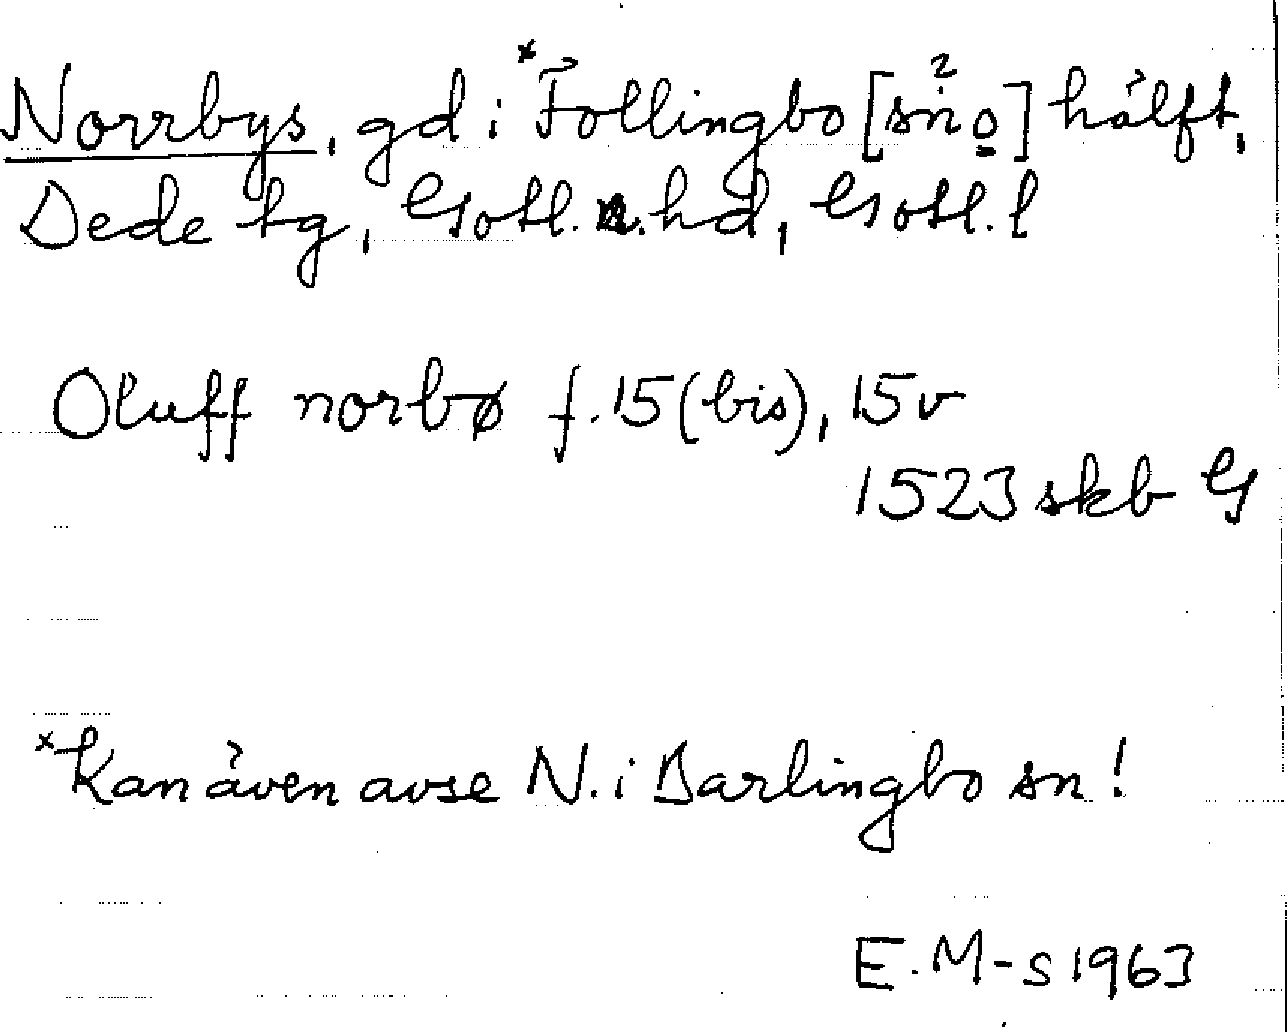 Norrbys, gd i *Follingbo [sn o] hälft,
Dede tg, Gotl. n. hd, Gotl. l
Oluff norbø f. 15 (bis), 15v
1523 skb G
*Kan även avse N. i Barlingbo sn!
E. M-s 1963